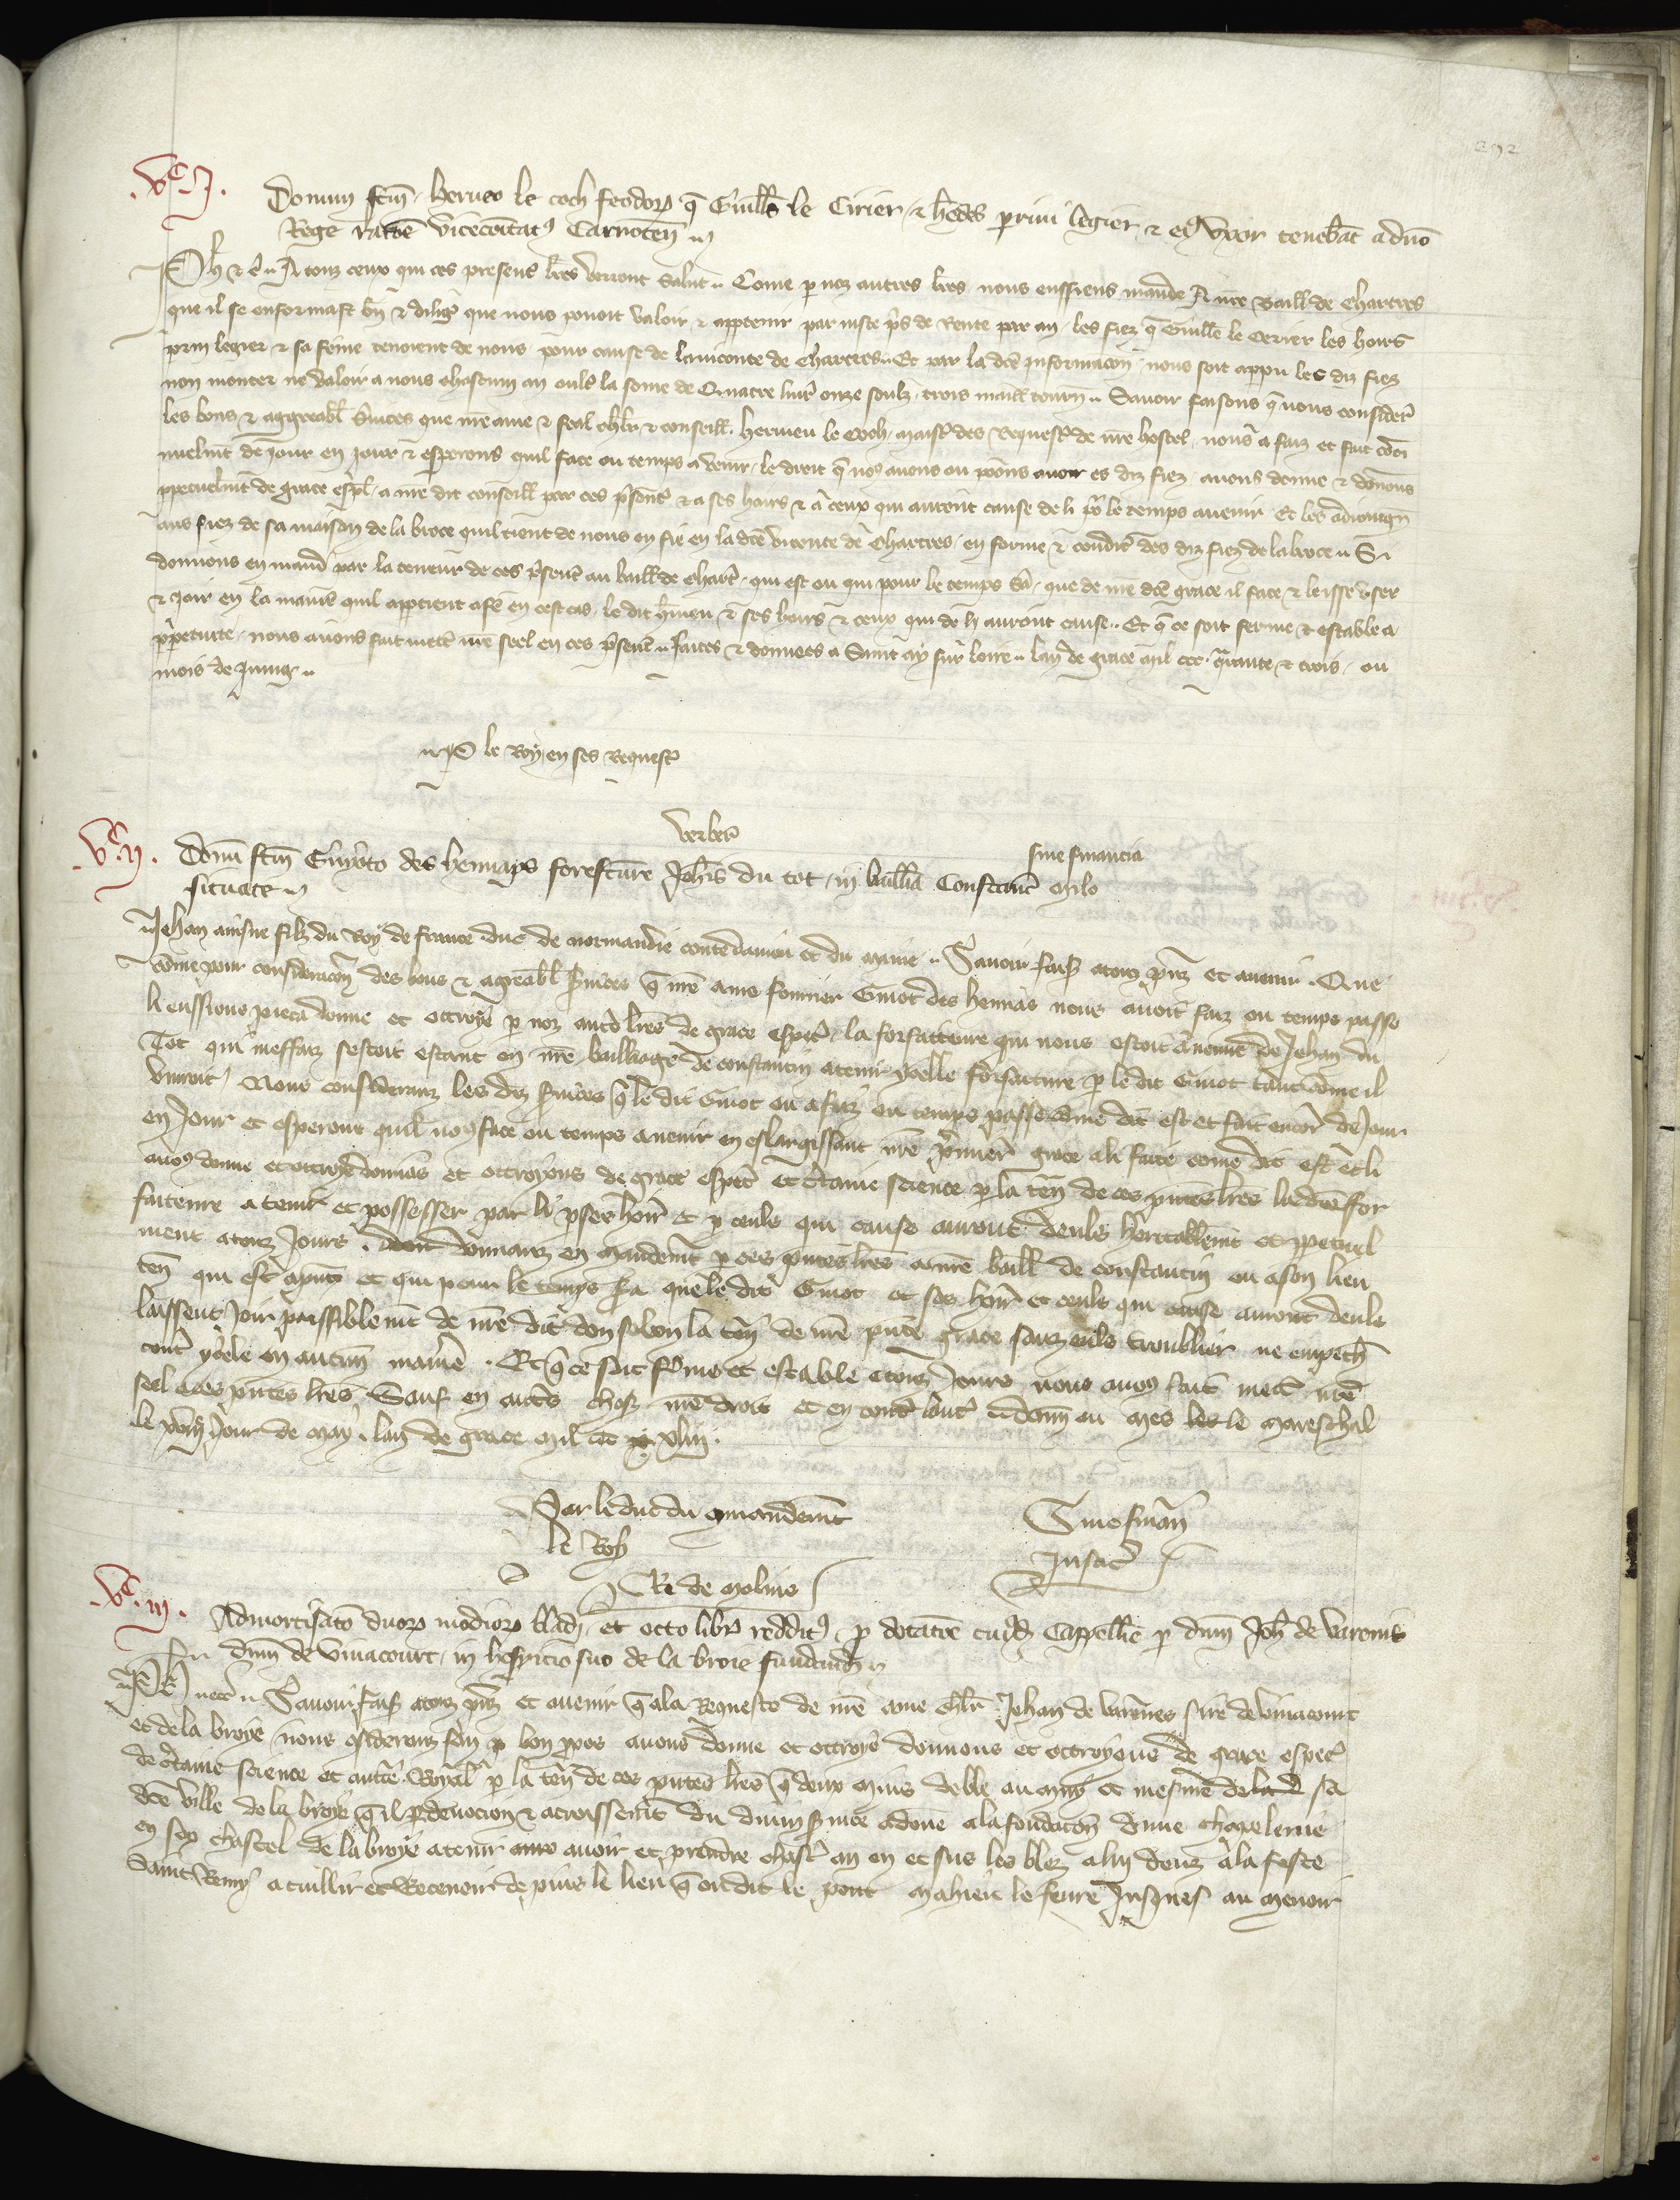 292
.Vᶜ.I.
Donum fcm Herueo le coch feodorum q̃ Guills le Cirier & hedes primi legier & eius Vxor tenebãt a dño
Rege rõne vicecomitatus Carnoteñ
Ph̃ & c̃. A touz ceux qui ces presens lr̃es verront Salut. Cõme p noz autres lr̃es nous eussiens mande A nr̃e Baill de Chartres
que il se enformast bñ & dilig̃ que nous pouoit valoir & apptenir par iuste p̃s de Rente par an les fiez q̃ Guille le Cerier les hoirs
prin legier & sa fẽme tenoient de nous pour cause de la viconte de Chartres. Et par la dc̃e Informacoñ nous soit appu les diz fiez
non monter ne valoir a nous chascun an oult̃ la sõme de Quatre liur̃ onze soulz trois maill tourñ. Sauoir faisons q̃ nous consider̃
les bons & aggreabl s̃uices que nr̃e ame & feal chlr̃ & conseill Herueu le Coch maist̃ des Request̃ de nr̃e hostel nous a faiz et fait cõti
nuelmt̃ de jour en jour & esperons quil face ou temps a venir le droit q̃ nos auons ou poõns auoir es diz fiez auons donne & donõns
ppetuelmt̃ de grace esp̃l a nr̃e dit conseill par ces p̃sent̃ & a ses hoirs & a ceux qui auront cause de li po᷑ le temps auenir Et les adioingñ
aus fiez de sa maison de la broce quil tient de nous en fie en la dc̃e viconte de Chartres en forme & condit̃ des diz fiez de la broce. Si
donnons en mand̃ par la teneur de ces p̃sent̃ au baill de Chart̃ qui est ou qui pour le temps sa᷑ que de nr̃e dc̃e grace il face & leisse vser
& joir en la manie᷑ quil apptient a fe᷑ en cest cas le dit h̃ueu & ses hoirs & ceux qui de li auront cause. Et q̃ ce soit ferme & estable a
p̃petuite nous auons fait mett̃ nr̃e seel en ces p̃sent̃. Faites & donnees a Saint ay sur loire. lan de grace mil ccc. q̃rante & trois ou
mois de Juing.
P le Roy en ses Request̃
Verber̃
.Vᶜ.ij. Donũ fcm̃ Guyoto des hennaps forefcũre Joh̃is du tot in bailliã Constanc̃ milo
sine financia
situate
Jehan ainsne filz du Roy de France duc de normandie conte danjou et du Maine. Sauoir fais̃ a touz p̃nz et auenir. Que
cõme pour consideracoñ des bons & agreabl s̃uices q̃ nr̃e ame sõmier Guiot des hennas nous auoit faiz ou temps passe
li eussions pieca donne et ottroye p noz aut̃s lr̃es de grace esp̃c la forfaiteure qui nous estoit auenue de Jehan du
Tot qui meffaiz sestoit estant en nr̃e bailliage de constantin a tenir ycelle forfaiture p le dit Guiot tant cõme il
viuroit Nous considerans les diz s̃uices q̃ le dit Guiot ou a faiz ou temps passe cõme dit est et fait encor̃ de Jour
en Jour et esperons quil nos face ou temps auenir en eslargissant nr̃e p̃miere grace a li faite cõme dit est et li
auos donne et ottroye donnõs et ottroyons de grace esp̃c et c̃taine science p la teñ de ces pñtes lr̃es la dc̃e for
faiteure a tenir et possesser par li p ses hoir̃ et p ceuls qui cause auront deuls heritablemt̃ et ppetuel
ment a touz Jours. donnans en Mandemt̃ p ces pñtes lr̃es a nr̃e baill de constantin ou a son lieu
teñ qui est a p̃nt et qui pour le temps s̃a que le dit Guiot et ses hoir̃ et ceuls qui cause auront deuls
laissent Joir paissiblemt̃ de nr̃e dit don selon la teñ de nr̃e pñte grace sanz euls troubler ne empech̃
cont̃ ycele en aucũn manie᷑. Et q̃ ce soit ferme et estable a touz Jours nous auos fait mett̃ nr̃e
seel a ces pñtes lr̃es. Sauf en autres choses nr̃e droit et en toutes lautrui doñ au Mes le Mareschal
le Jour de May. lan de grace Mil ccc xliij.
Par le duc du cõmandemt̃
le Roy
Sine finañ
Jnfac̃
R de Molins
.Vᶜ.iij. Admortisatõ duorum modiorum bladi et octo librarum redditus p dotatõe cuiusdam Cappellie p dnm̃ Joh̃ de Varenis
dnm̃ de Vinacourt in hospicio suo de la broie fundatã
Ph̃ & c̃. Sauoir fais̃ a touz p̃nz et auenir q̃ a la Requeste de nr̃e ame chlr̃ Jehan de Varẽnes sire de Vinacourt
et de la broye nous cõsiderans son bon ppos auons donne et ottroye donnons et ottroyons de grace esp̃c
de c̃taine science et aucte᷑ Royal p la teñ de ces pñtes lr̃es q̃ deux Muis de ble au et mesure de la sa
dc̃e ville de la broye q̃ il p deuocion & acroissemt̃ du diuin s̃uice a done a la fondacoñ dune chapelerie
en sop chastel de la broye a tenir auoir et prandre chasc̃ an en et sus les blez a lui deuz a la feste
Saint Remy a cuillir et Receuoir depuis le lieu q̃ on dit le pont Mahieu le feure Jusques au Menoir